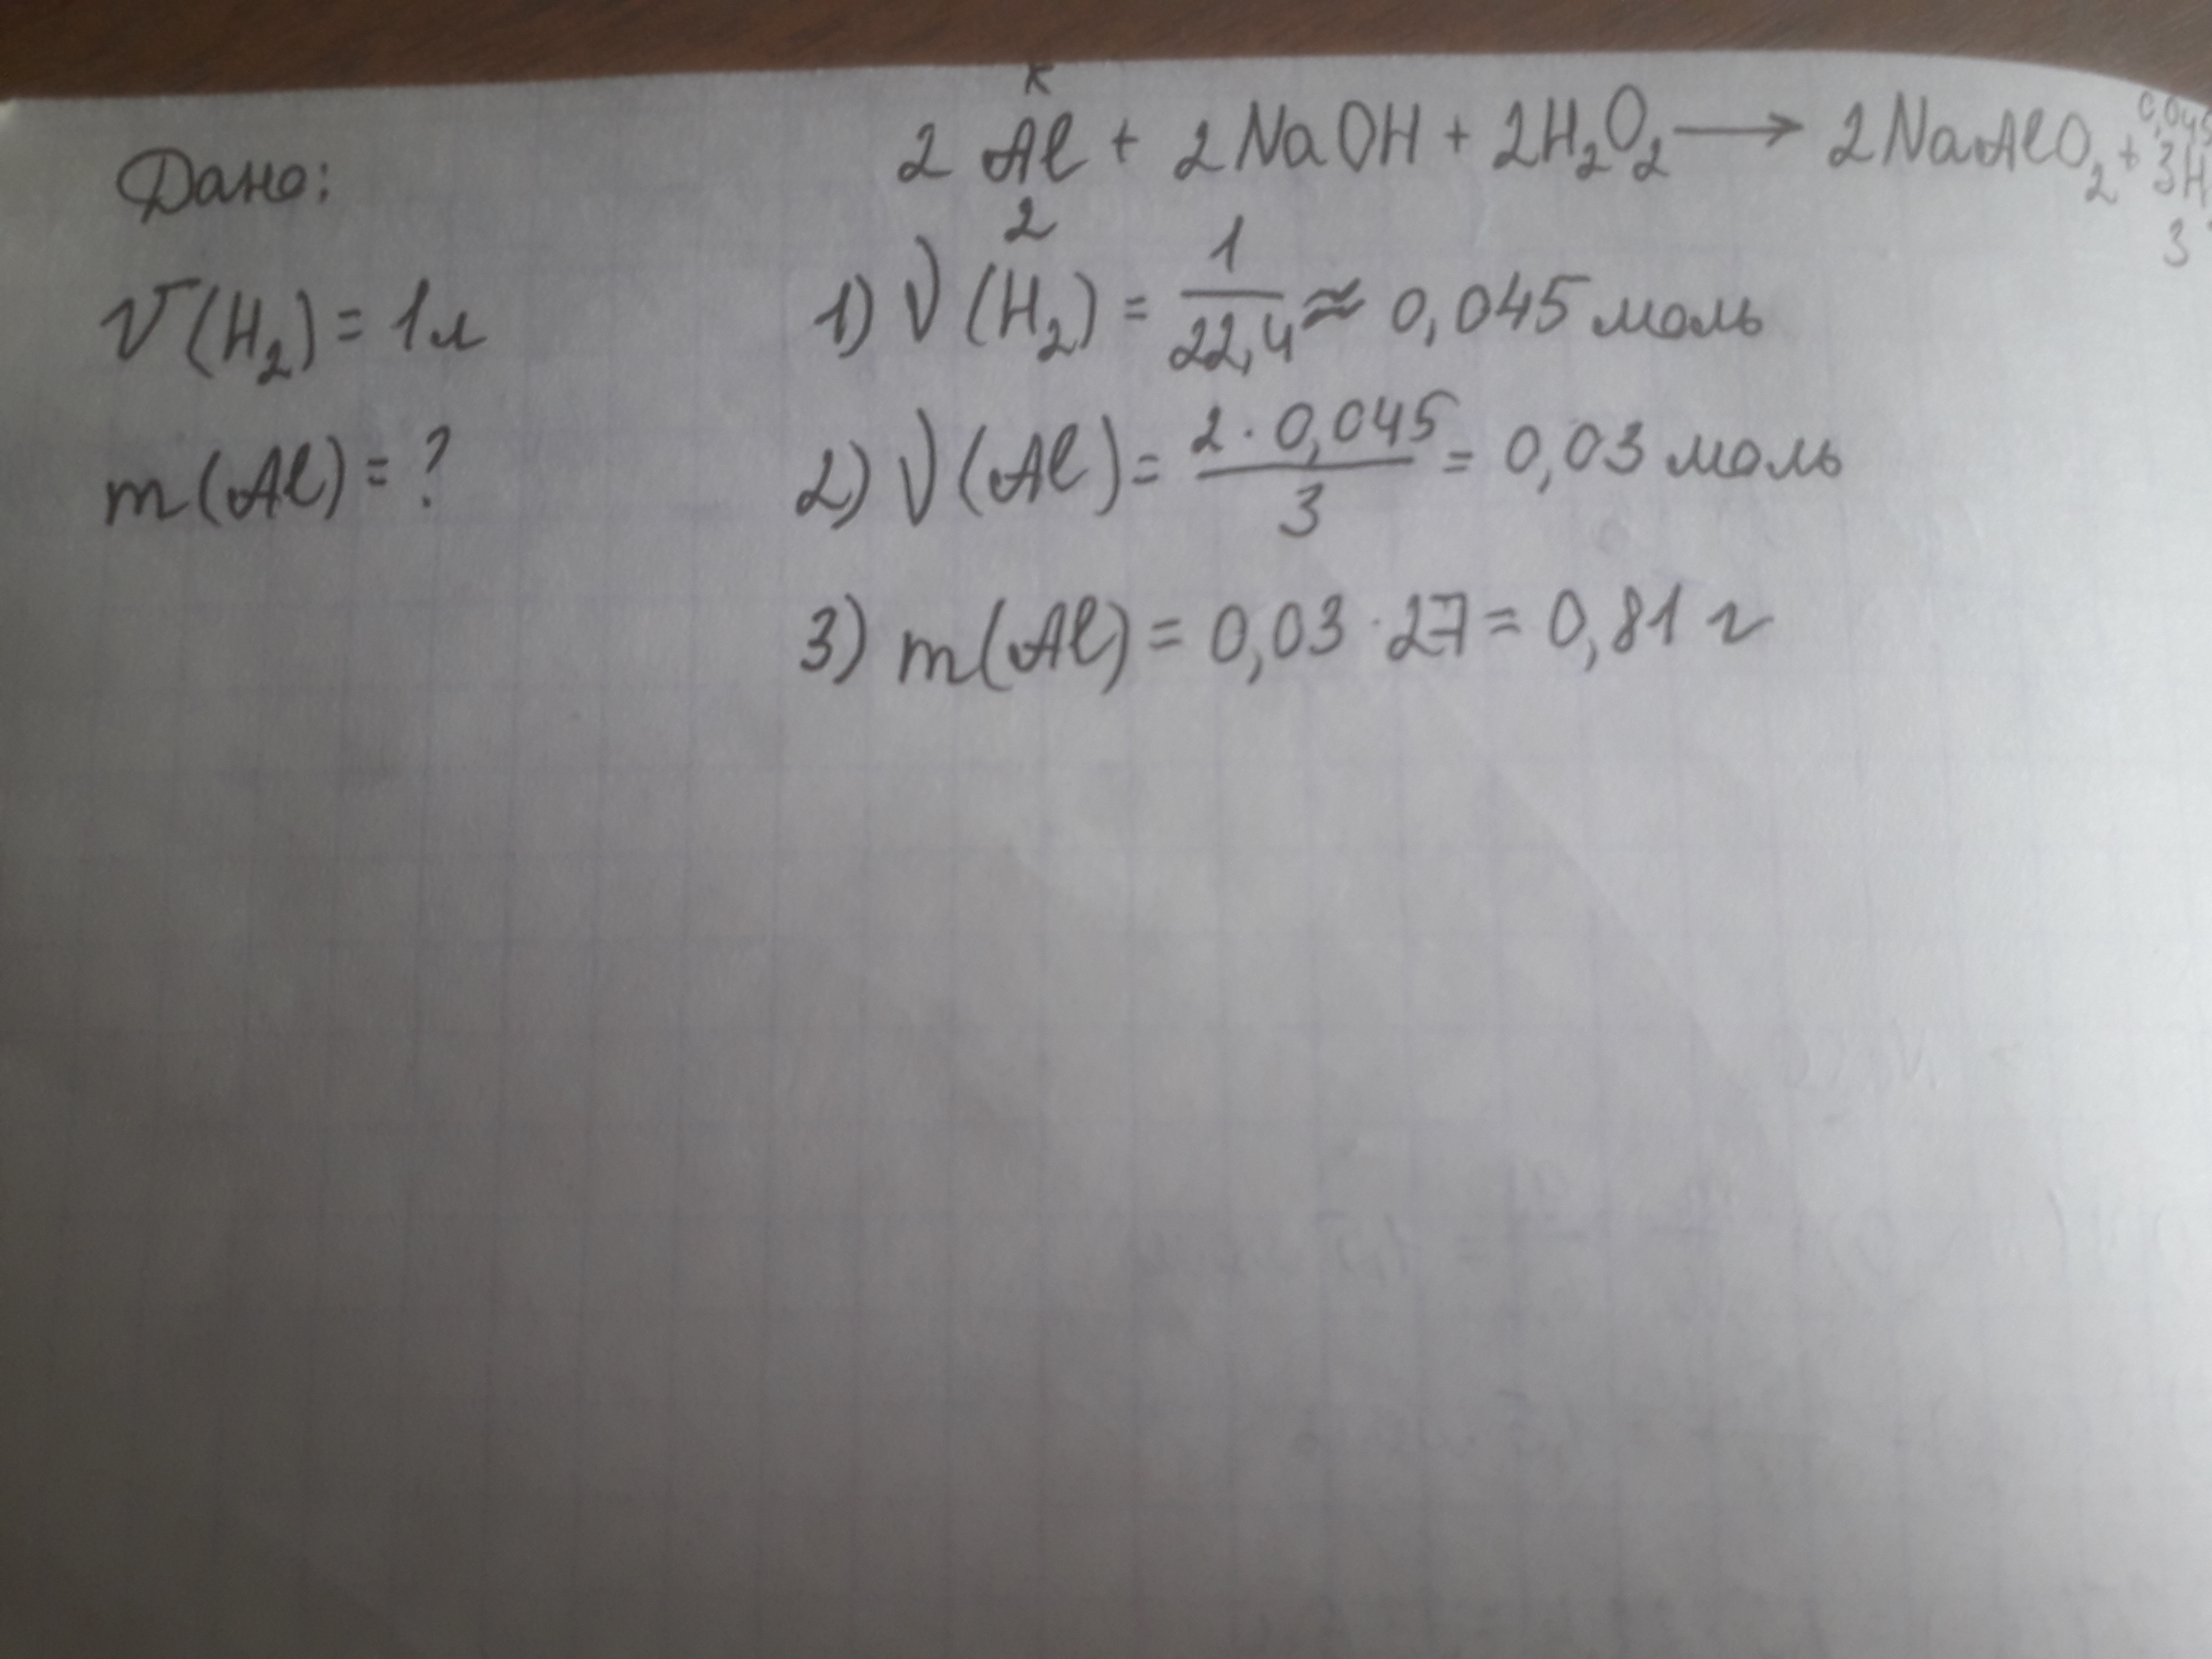 Дано:
V(H₂) = 1 л
m(Al) = ?
2 Al + 2NaOH + 2H₂O₂ → 2NaAlO₂ + 3H
2
3
1) ν(H₂) = 1/22,4 ≈ 0,045 моль
2) ν(Al) = 2·0,045/3 = 0,03 моль
3) m(Al) = 0,03·27 = 0,81 г